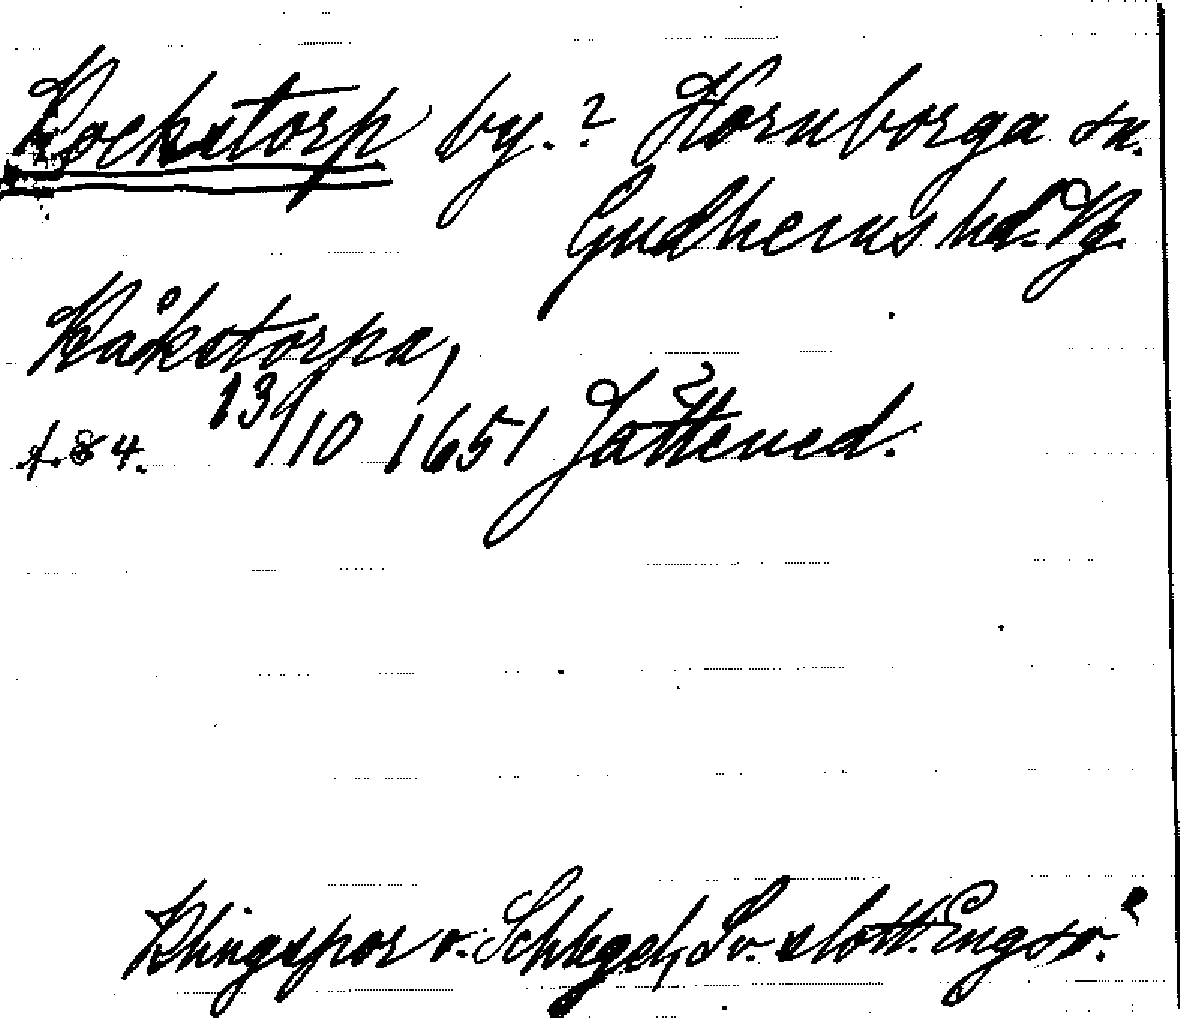 Kockstorp by.? Hornborga sn.
Gudhems hd. Vg.
Kåkstorpa,
f. 84. 13/10 1651 Jättened.
Klingspor o. Schlegel, Sv. slott. Engsö.